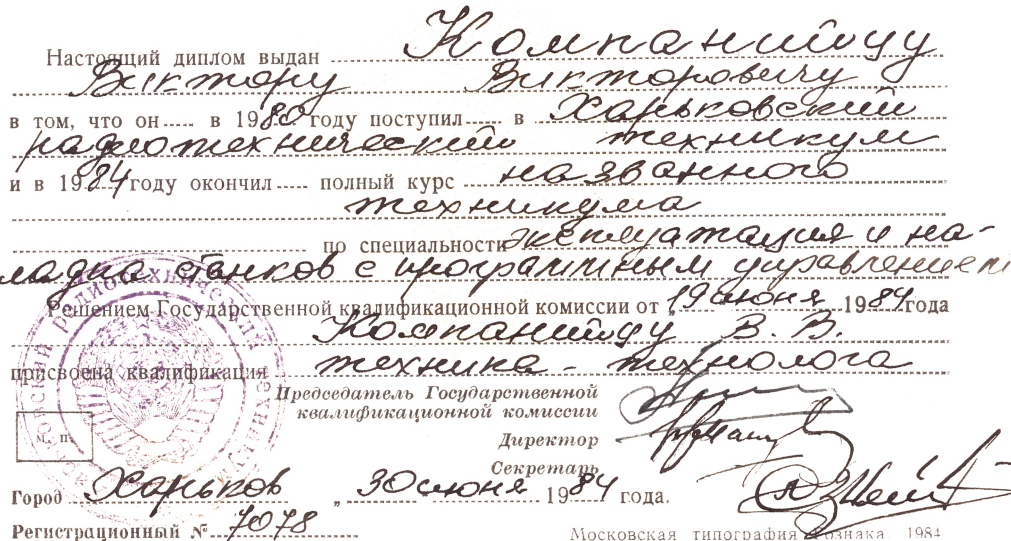 Настоящий диплом выдан Компанийцу
Виктору Викторовичу
в том, что он..... в 1980 году поступил..... в Харьковский
радиотехнический техникум
и в 1984 году окончил..... полный курс названного
техникума
по специальности эксплуатация и на-
ладка станков с программным управлением
Решением Государственной квалификационной комиссии от „19 июня 1984 года
Компанийцу В. В.
присвоена квалификация техника-технолога
Председатель Государственной
квалификационной комиссии
Директор
Секретарь
М. П.
Город Харьков „ 30 июня 1984 года.
Регистрационный № 7078
Московская типография Гознака. 1984